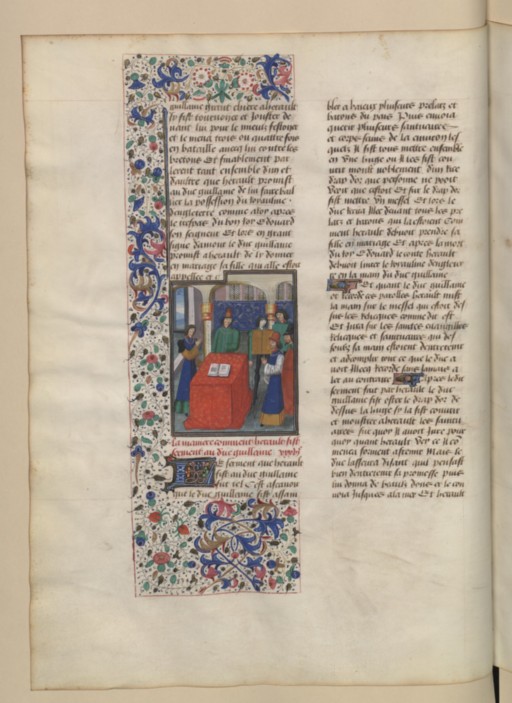 guillame thirant chiere a herault
sy fist tournoyer et jouster de
uant lui pour le mieulx festoyer
et le mena trois ou quattre fois
en bataille auecq lui contre les
bretons Et finablement par
lerent tant ensemble dun et
daultre que herault promist
au duc guillame de lui faire bail
lier la possession du royaulme
dengleterre comme aloy apres
le trespas du bon roy Edouard
son seigneur Et lors en grant
signe damour le duc guillame
promist a herault de lui donner
en mariage sa fille qui elle estoit
appellee et
la maniere comment herault fist
serment au duc guillame xxxviij
Le serment que herault
fist au duc guillame
fut tel Cest ascauoir
que le duc guillame fist assam
bler a baieux plusieurs prelatz et
barons du pais Puis enuoia
querir plusieurs saintuaires
et corps sains de la enuiron les
quelz Il fist tous mettre ensemble
en vne huche ou Il les fist cou
urir moult noblement dun tire
drap dor que personne ne pooit
veoir que cestoit Et sur le drap dor
fist mettre vn messel Et lors le
duc deuant tous les pre
latz et barons qui la estoient Com
ment herault debuoit prendre sa
fille en mariage Et apres la mort
du roy Edouard le roy herault
debuoit mettre le royaulme dengleter
re en la main du duc guillame
Et quant le duc guillame
et recorde ces parolles herault mist
la main sur le messel qui estoit des
sus les relicques comme dit est
Et Jura sur les saintes euuangilles
relicques et saintuaires qui des
soubz sa main estoient dentretenir
et acomplir tout ce que le duc a
uoit Illecq recorde sans Jamais a
ler au contraire Apres ledit
serment fait par herault le duc
guillame fist oster le drap dor de
dessus la huche sy la fist couurir
et monstrer a herault les saintu
aires sur quoy Il auoit Jure pour
quoy quant herault vey ce Il co
menca forment a fremir Mais le
duc lasseura disant quil pensast
bien dentretenir sa promesse puis
lui donna de beaulx dons et le con
uoia Jusques a la mer Et herault